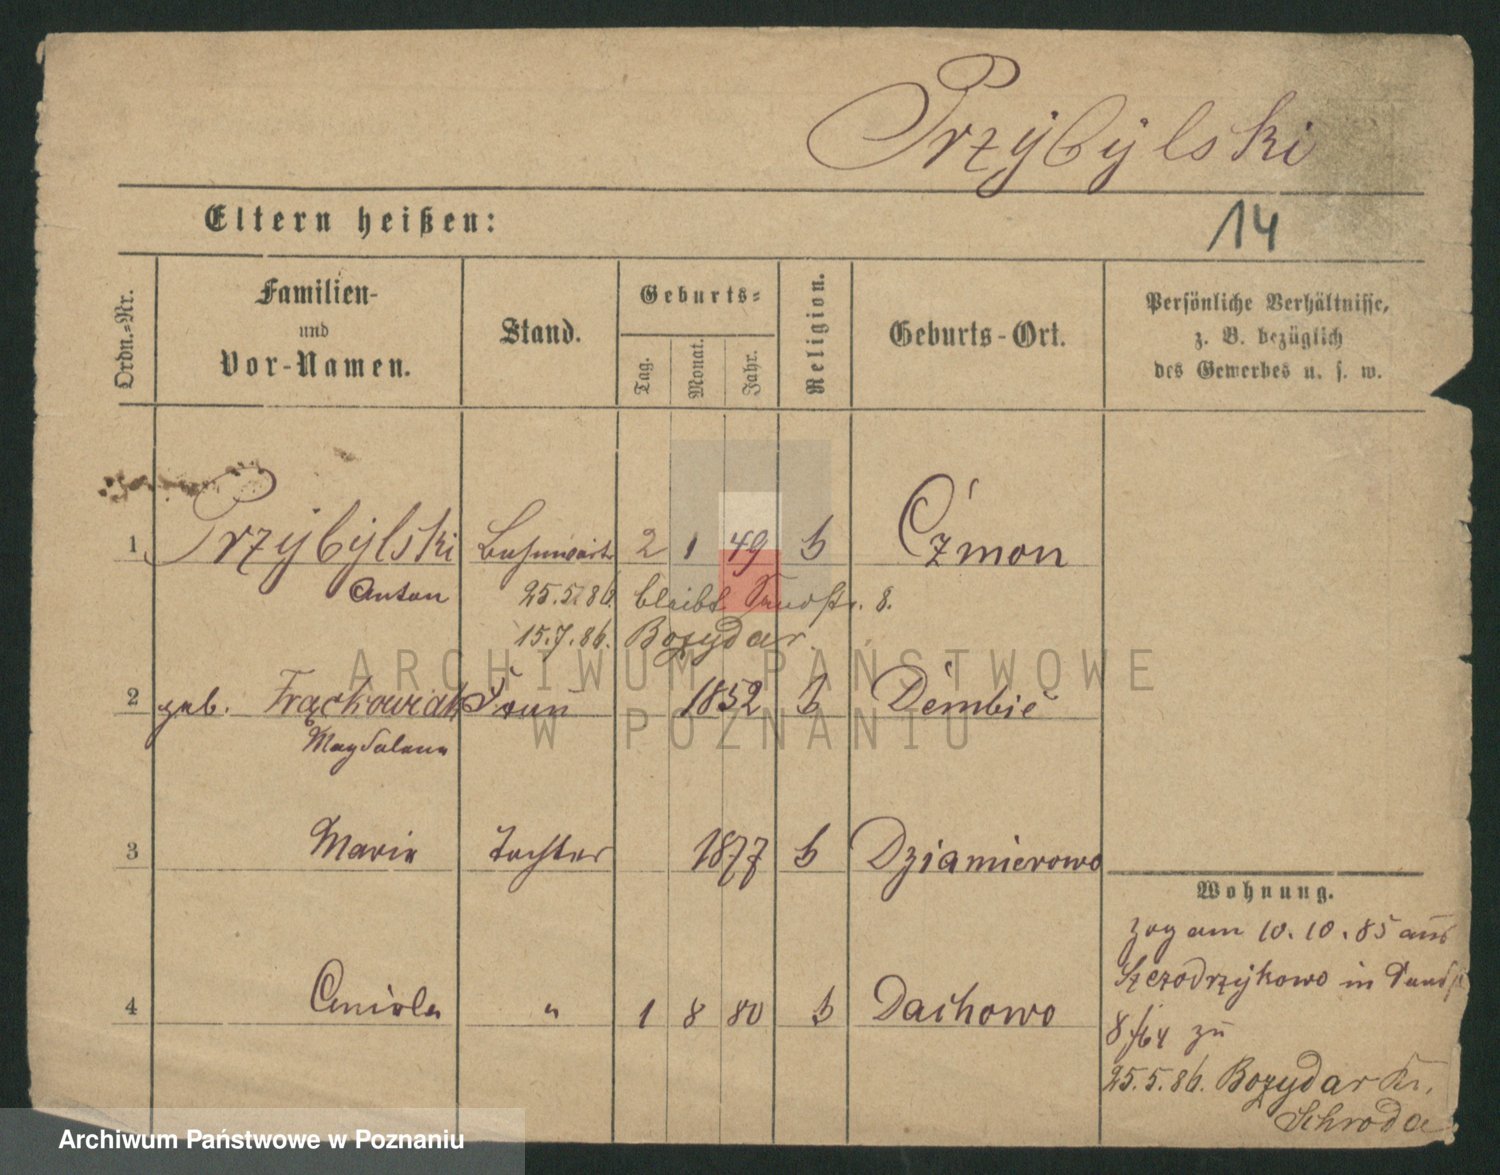 Przybylski
Eltern heißen:
14
Ordn.-Nr.
Familien-
und
Vor-Namen.
Stand.
Geburts-
Tag.
Monat.
Jahr.
Religion.
Geburts-Ort.
Persönliche Verhältnisse,
z. B. bezüglich
des Gewerbes u. s. w.
1 Przÿbÿlski 2 1 49 Czmon
Anton 25.5.86. bleibt Sandstr. 8.
15.7.86. Bozydar.
2 geb. Frąckowiak Frau 1852 Dembiec
Magdalena
3 Marie Tochter 1877 Dziamierowo
Wohnung.
zog am 10.10.85 aus
Szczodrzykowo in Sandstr
4 Aniela " 1 8 80 Dachowo
8 zu
25.5.86. Bozydar Kr.
Schroda
ARCHIWUM PAŃSTWOWE
W POZNANIU
Archiwum Państwowe w Poznaniu